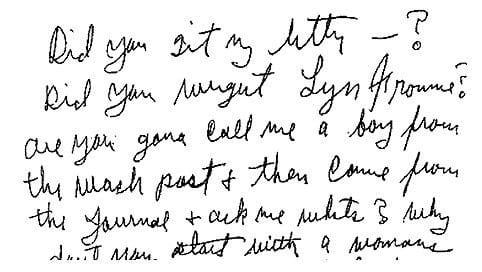 Did you git my letty — ?
Did you wright Lyn Froume?
are you gona call me a boy from
the wash post + then come from
the Journal + ask me whts & why
don't you start with a womans